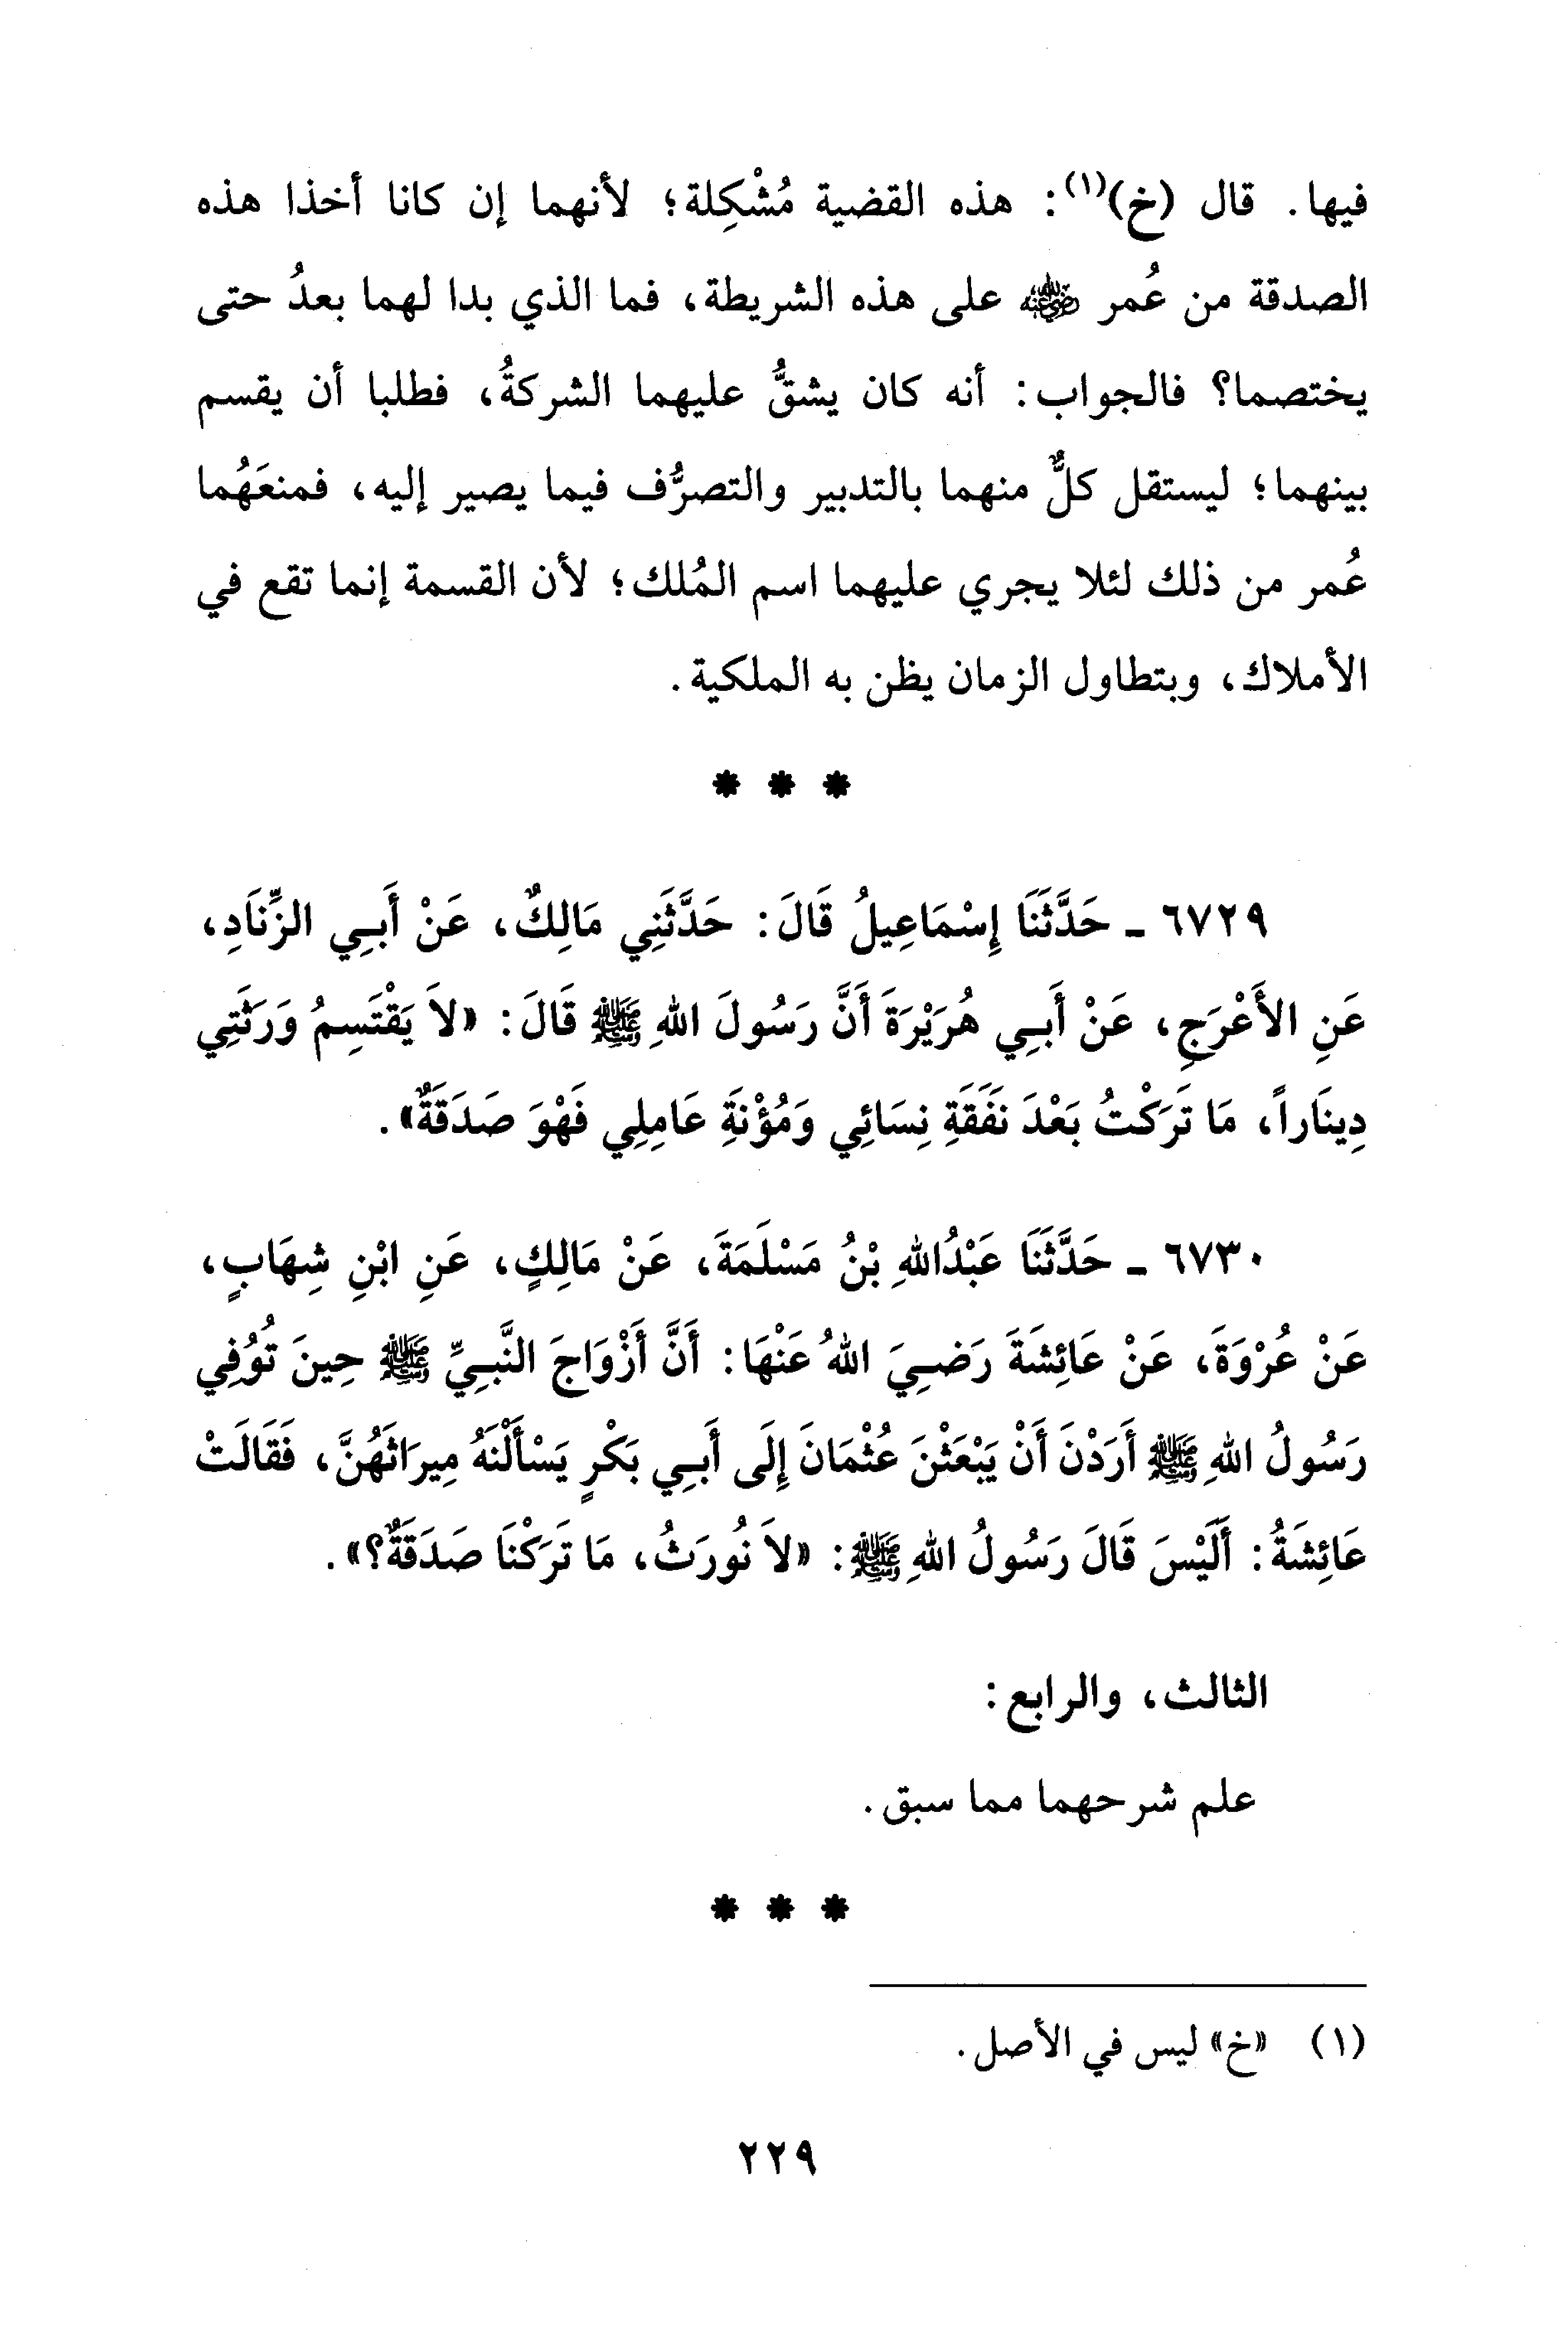 فيها. قال (خ)(١): هذه القضية مُشْكِلة؛ لأنهما إن كانا أخذا هذه
الصدقة من عُمر رضي الله عنه على هذه الشريطة، فما الذي بدا لهما بعدُ حتى
يختصما؟ فالجواب: أنه كان يشقُّ عليهما الشركةُ، فطلبا أن يقسم
بينهما؛ ليستقل كلٌّ منهما بالتدبير والتصرُّف فيما يصير إليه، فمنعَهُما
عُمر من ذلك لئلا يجري عليهما اسم المُلك؛ لأن القسمة إنما تقع في
الأملاك، وبتطاول الزمان يظن به الملكية.
* * *
٦٧٢٩ ـ حَدَّثَنَا إِسْمَاعِيلُ قَالَ: حَدَّثَنِي مَالِكٌ، عَنْ أَبِي الزِّنَادِ،
عَنِ الأَعْرَجِ، عَنْ أَبِي هُرَيْرَةَ أَنَّ رَسُولَ اللهِ ﷺ قَالَ: «لاَ يَقْتَسِمُ وَرَثَتِي
دِينَاراً، مَا تَرَكْتُ بَعْدَ نَفَقَةِ نِسَائِي وَمُؤْنَةِ عَامِلِي فَهْوَ صَدَقَةٌ».
٦٧٣٠ ـ حَدَّثَنَا عَبْدُاللهِ بْنُ مَسْلَمَةَ، عَنْ مَالِكٍ، عَنِ ابْنِ شِهَابٍ،
عَنْ عُرْوَةَ، عَنْ عَائِشَةَ رَضِيَ اللهُ عَنْهَا: أَنَّ أَزْوَاجَ النَّبِيِّ ﷺ حِينَ تُوُفِي
رَسُولُ اللهِ ﷺ أَرَدْنَ أَنْ يَبْعَثْنَ عُثْمَانَ إِلَى أَبِي بَكْرٍ يَسْأَلْنَهُ مِيرَاثَهُنَّ، فَقَالَتْ
عَائِشَةُ: أَلَيْسَ قَالَ رَسُولُ اللهِ ﷺ: «لاَ نُورَثُ، مَا تَرَكْنَا صَدَقَةٌ؟».
الثالث، والرابع:
علم شرحهما مما سبق.
* * *
(١) «خ» ليس في الأصل.
٢٢٩